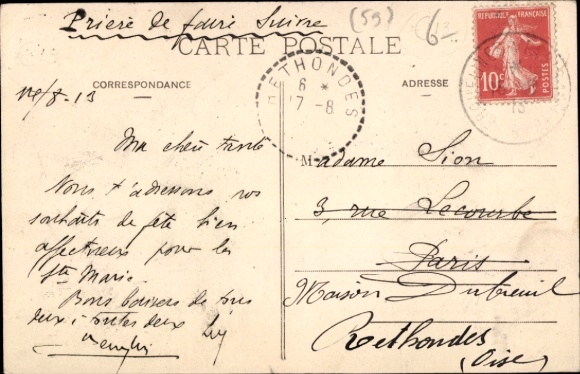 Prière de faire Suivre
(55)
6-
CARTE POSTALE
CORRESPONDANCE
ADRESSE
RÉPUBLIQUE FRANÇAISE
10c
POSTES
RETHONDES
6 *
17 -8
13
/8-13
Ma chère tante
Nous t'adressons nos
souhaits de fête bien
affectueux pour la
Ste Marie.
Bons baisers de tous
deux à toutes deux
Madame Sion
3, rue Lecourbe
Paris
Maison Dubreuil
Rethondes
(Oise)